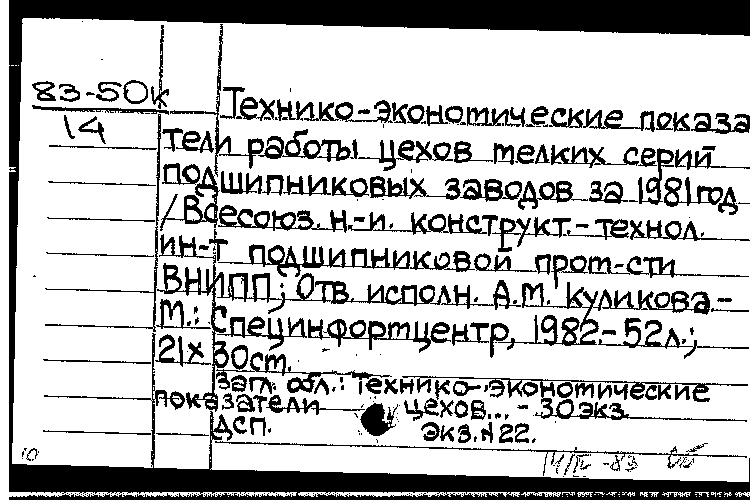 83-50к
14
Технико-экономические показа
тели работы цехов мелких серий
подшипниковых заводов за 1981 год
/ Всесоюз. н.-и. конструкт.-технол.
ин-т подшипниковой пром-сти
ВНИПП; Отв. исполн. А.М. Куликова.-
М.: Специнформцентр, 1982.-52л.;
21х30см.
Загл. обл.: Технико-экономические
показатели цехов... - 30 экз.
ДСП. Экз. №22.
10